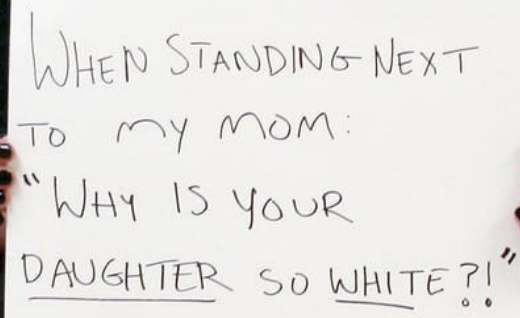 WHEN STANDING NEXT
TO MY MOM:
"WHY IS YOUR
DAUGHTER SO WHITE?!"